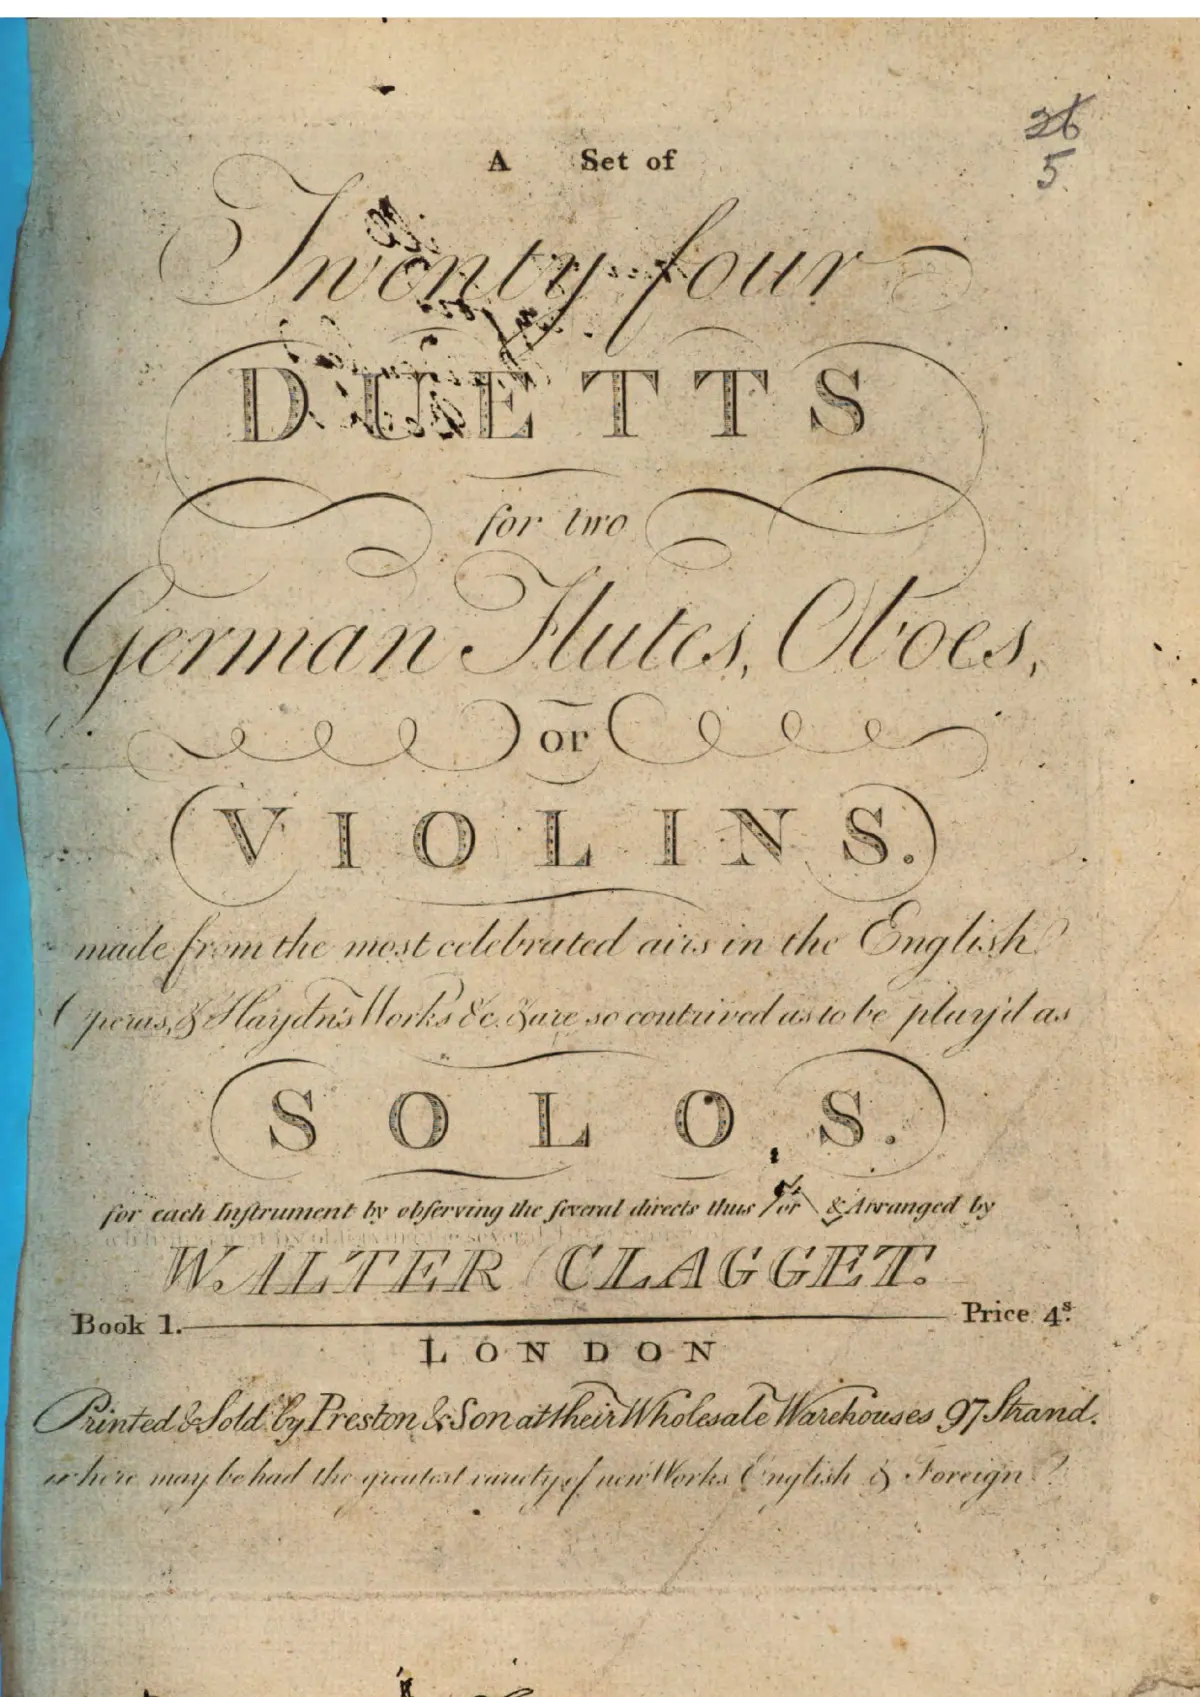 26
5
A Set of
Twenty four
DUETTS
for two
German Flutes, Oboes,
or
VIOLINS.
made from the most celebrated airs in the English
Operas, & Haydn's Works &c. & are so contrived as to be play'd as
SOLOS.
for each Inſtrument by obſerving the ſeveral directs thus / or \ & Arranged by
WALTER CLAGGET.
Book 1. Price 4s.
LONDON
Printed & Sold by Preston & Son at their Wholesale Warehouses 97 Strand.
where may be had the greatest variety of new Works English & Foreign